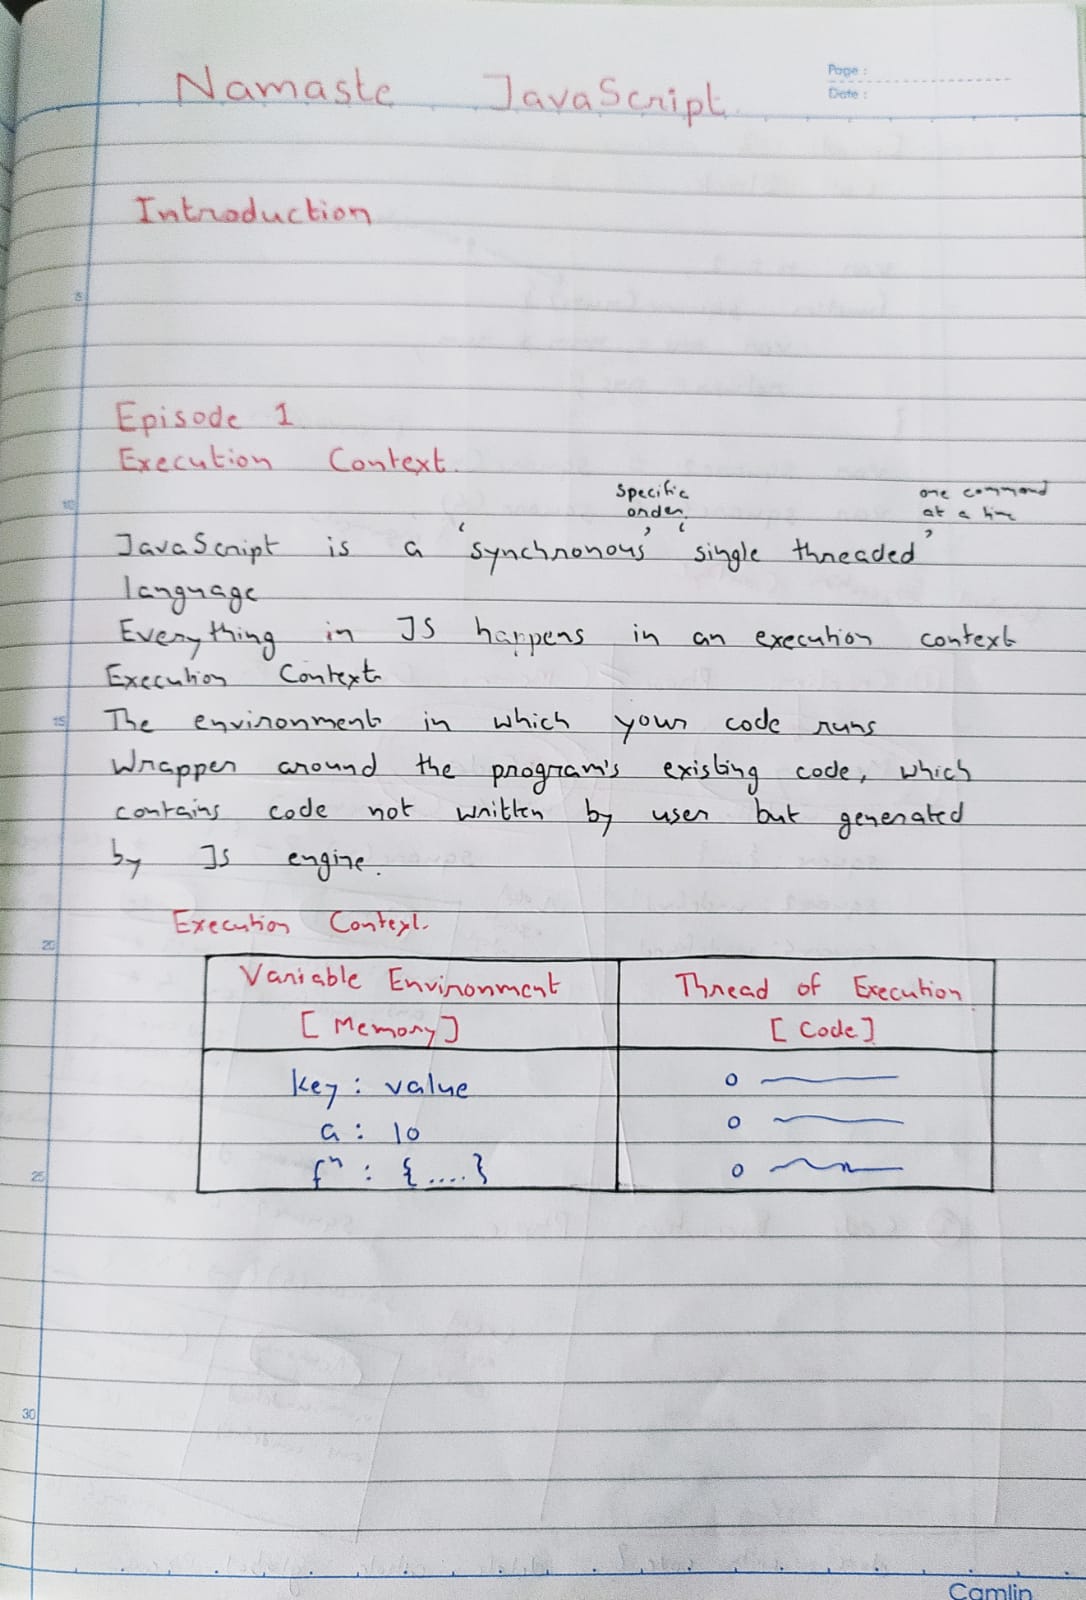 Page :
Date :
Namaste JavaScript
Introduction
5
Episode 1
Execution Context.
10
specific order
one command at a time
JavaScript is a 'synchronous' 'single threaded'
language
Everything in JS happens in an execution context
Execution Context
15
The environment in which your code runs
Wrapper around the program's existing code, which
contains code not written by user but generated
by JS engine.
Execution Context.
20
Variable Environment
[Memory]
Thread of Execution
[Code]
key : value
a : 10
fⁿ : {....}
25
30
Camlin